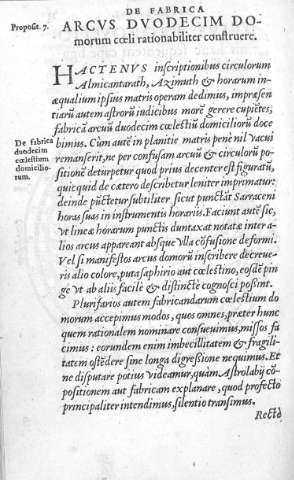 DE FABRICA
Proposit. 7. ARCVS DVODECIM DO-
morum cœli rationabiliter construere.
HACTENVS inscriptionibus circulorum
Almicantarath, Azimuth & horarum in-
æqualium ipsius matris operam dedimus, impræsen
tiarũ autem astrorũ indicibus morẽ gerere cupiẽtes,
fabricã arcuũ duodecim cœlestiũ domiciliorũ doce
De fabrica
duodecim
cœlestium
domicilio-
rum.
bimus. Cùm autẽ in planitie matris penè nil vacui
remanserit, ne per confusam arcuũ & circulorũ po-
sitionẽ deturpetur quod prius decenter est figuratũ,
quicquid de cætero describetur leniter imprimatur:
deinde pũctetur subtiliter sicut punctãt Sarraceni
horas suas in instrumentis horariis. Faciunt autẽ sic,
vt lineæ horarum punctis duntaxat notatæ inter a-
lios arcus appareant absque vlla cõfusione deformi.
Vel si manifestos arcus domorũ inscribere decreue-
ris alio colore, puta saphirio aut cœlestino, eosdẽ pin
ge vt ab aliis facilè & distinctè cognosci possint.
Plurifarios autem fabricandarum cœlestium do
morum accepimus modos, quos omnes, præter hunc
quem rationalem nominare consueuimus, missos fa
cimus: eorundem enim imbecillitatem & fragili-
tatem ostẽdere sine longa digressione nequimus. Et
ne disputare potius videamur, quàm Astrolabij cõ-
positionem aut fabricam explanare, quod profectò
principaliter intendimus, silentio transimus.
Rectà